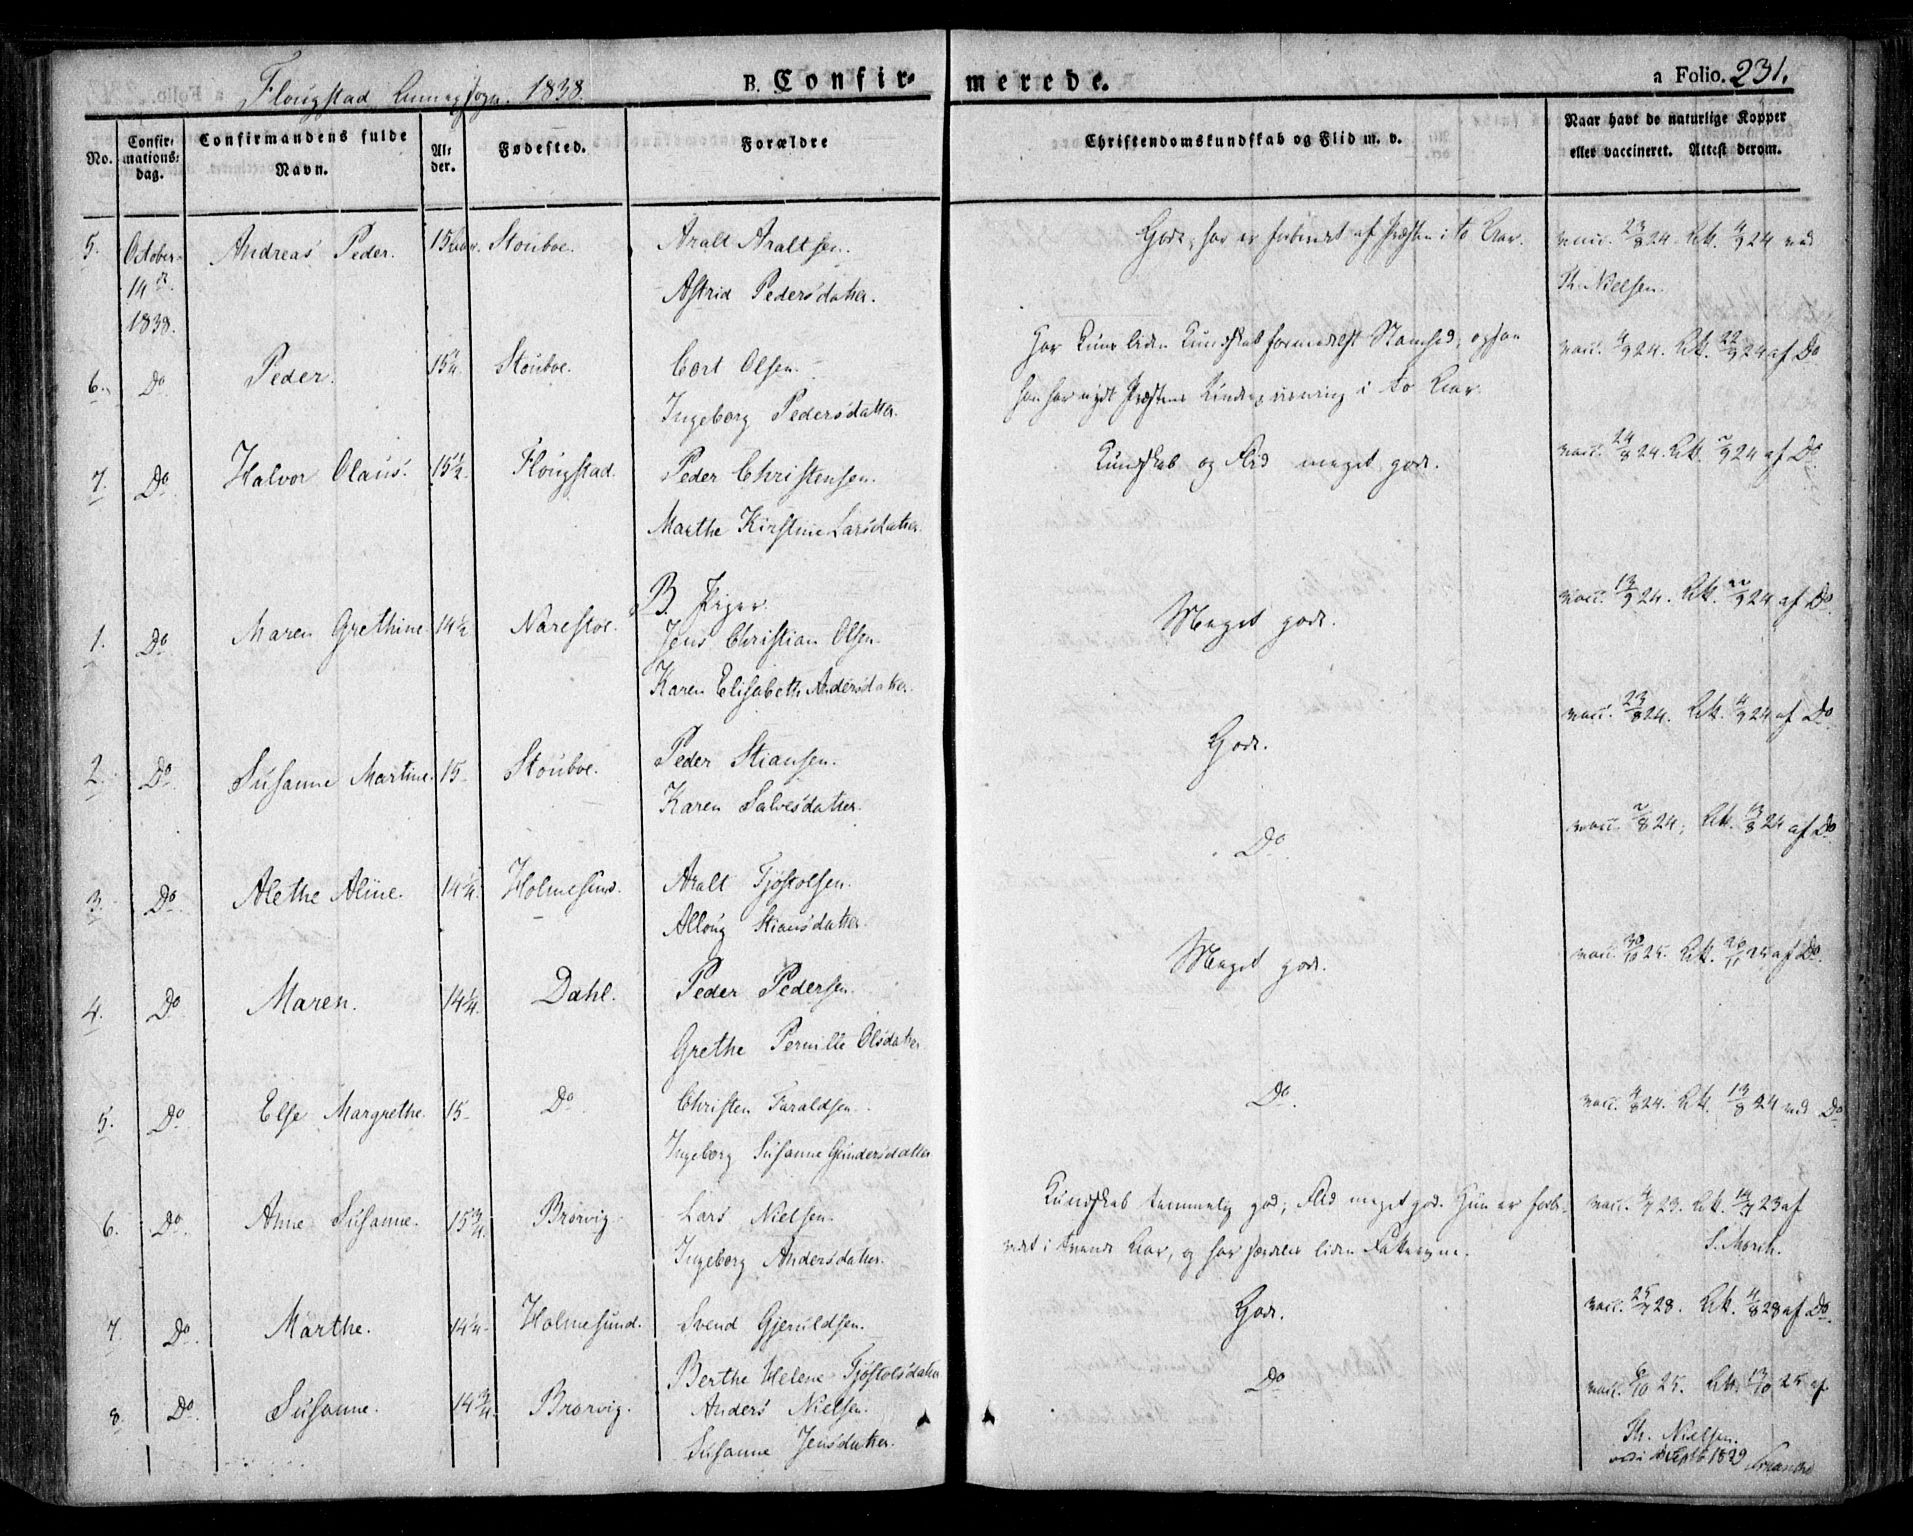 Flougstad Annexsogn. 1838.
B. Confirmerede.
a Folio. 231.
No.
Confirmationsdag.
Confirmandens fulde Navn.
Alder.
Fødested.
Forældre
Christendomskundskab og Flid m. v.
Naar havt de naturlige Kopper eller vaccineret. Attest derom.
5. October 14d 1838. Andreas Peder. 15 Stouboe. Aralt Araltsen. Gode, har er forberedt af Præsten i to Aar. vacc. 23/8 24. Att. 4/9 24 ved
Astrid Pedersdatter. Th. Nielsen.
6. Do Peder. 15¼. Stouboe. Cort Olsen. Har kun liden Kundskab formedelst vacc. 4/9 24. Att. 22/9 24 af Do
Ingeborg Pedersdatter. han har nydt Præstens Underviisning i to Aar.
7. Do Halvor Olaus. 15½. Flougstad. Peder Christensen. Kundskab og Flid meget god. vacc. 24/8 24. Att. /9 24 af Do
Marthe Kirstine Larsdatter.
B. Piger.
1. Do Maren Grethine 14½ Narestoe. Jens Christian Olsen. Meget gode. vacc. 13/9 24. Att. 22/9 24 af Do.
Karen Elisabeth Andersdatter.
2. Do Susanne Martine. 15. Stouboe. Peder Stiansen. Gode. vacc. 23/8 24. Att. 4/9 24 af Do
Karen Salvesdatter.
3. Do. Alethe Aline. 14¼. Holmesund. Aralt Tjøstolsen. Do. vacc. /8 24, Att. 13/8 24 af Do
Alloug Stiansdatter.
4. Do Maren. 14¼. Dahl. Peder Pedersen. Meget gode. vacc. 30/10 25. Att. 26/11 25 af Do.
Grethe Pernille Olsdatter.
5. Do Else Margrethe. 15. Do Christen Taraldsen. Do. vacc. 4/8 24. Att. 13/8 24 ved Do
Ingeborg Susanne Gundersdatter
6. Do. Anne Susanne. 15¾. Brørvig. Lars Nielsen. Kundskab temmelig god; Flid meget god. Hun er forbe- vacc. 4/7 23. Att. 14/7 23 af
Ingeborg Andersdatter. redt i trende Aar, og har særdeles liden Fatteevne. S. Mørch.
7. Do Marthe. 14¼. Holmesund. Svend Gjeruldsen. Gode. vacc. 25/7 28. Att. 4/8 28 af Do.
Berthe Helene Tjøstolsdatter
8. Do. Susanne. 14¾. Brørvig. Anders Nielsen. Do vacc. 6/10 25. Att. 13/10 25 af
Susanne Jensdatter. Th. Nielsen.
1839